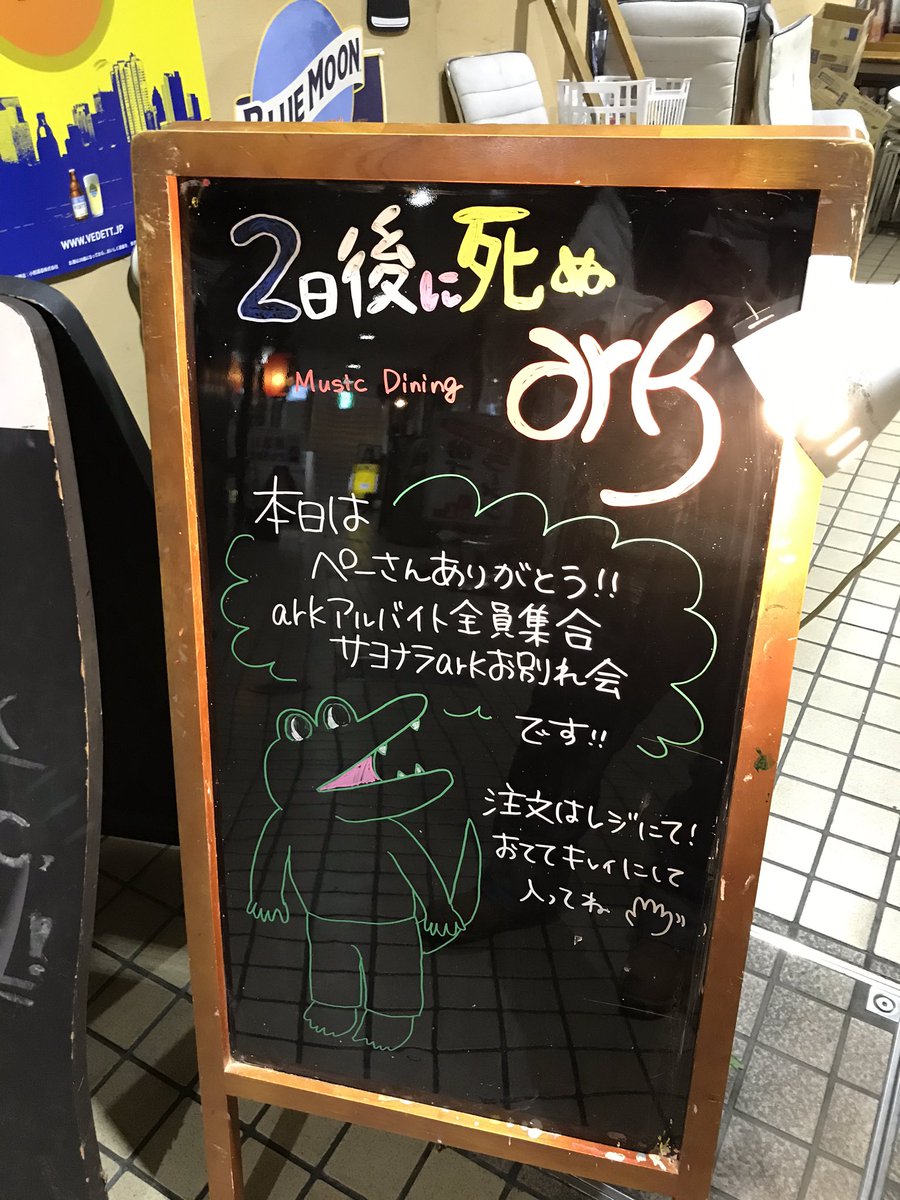 BLUE MOON
WWW.VEDETT.JP
2日後に死ぬ
Music Dining
ark
本日は
ペーさんありがとう!!
arkアルバイト全員集合
サヨナラarkお別れ会
です!!
注文はレジにて!
おててキレイにして
入ってね